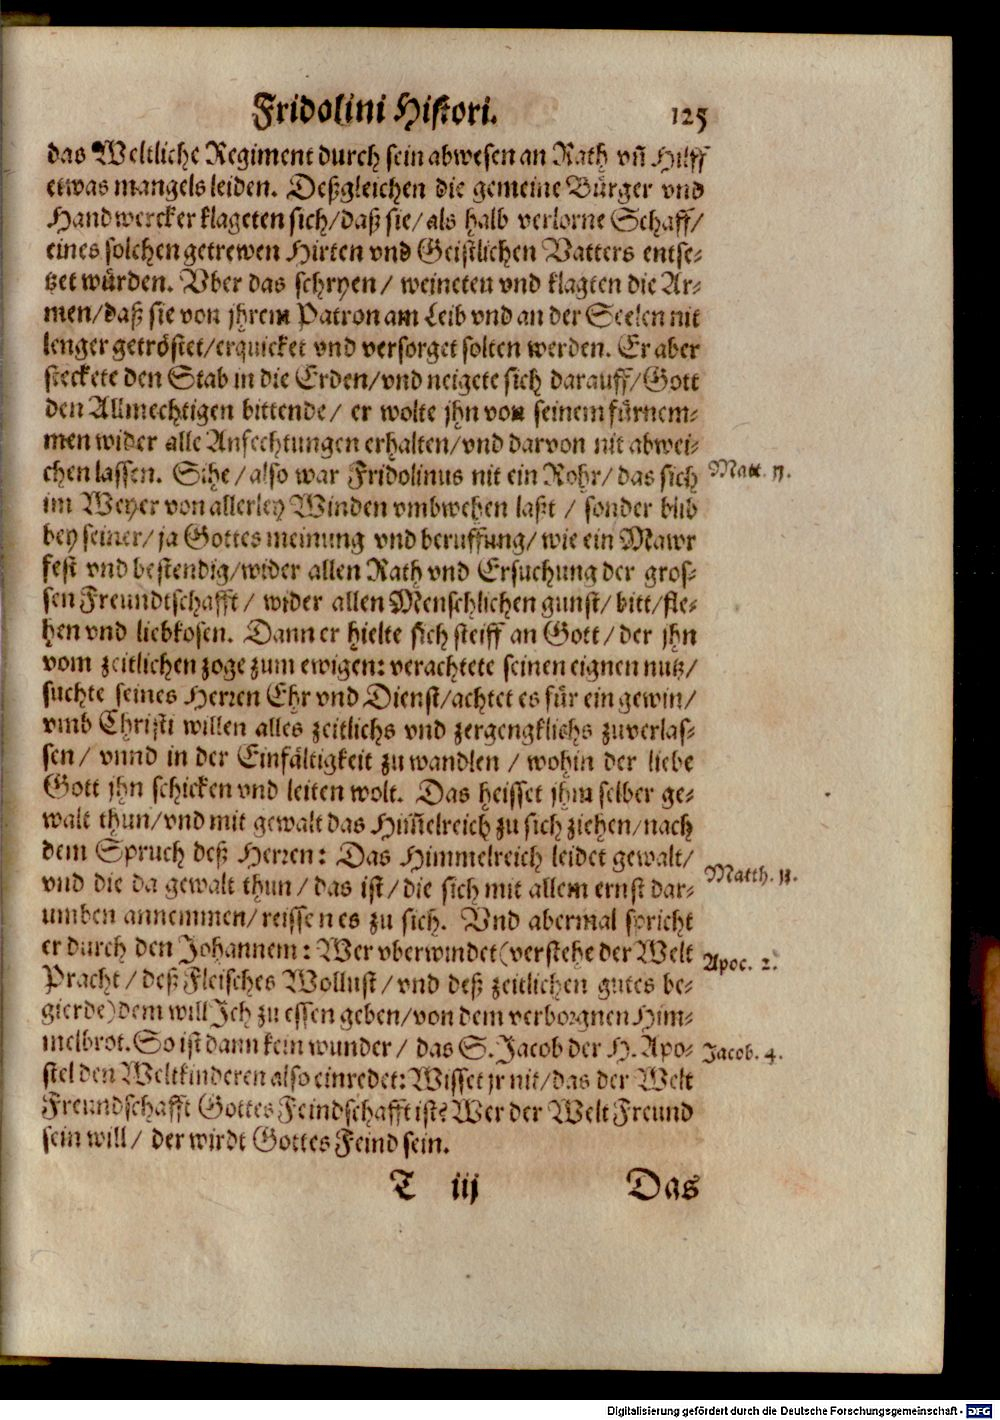 Fridolini Histori. 125
das Weltliche Regiment durch sein abwesen an Rath vñ Hilff
etwas mangels leiden. Deßgleichen die gemeine Bürger vnd
Handwercker klageten sich/daß sie/als halb verlorne Schaff/
eines solchen getrewen Hirten vnd Geistlichen Vatters entse-
tzet würden. Vber das schryen/ weineten vnd klagten die Ar-
men/daß sie von jhrem Patron am Leib vnd an der Seelen nit
lenger getröstet/erquicket vnd versorget solten werden. Er aber
steckete den Stab in die Erden/vnd neigete sich darauff/Gott
den Allmechtigen bittende/ er wolte jhn von seinem fürnem-
men wider alle Anfechtungen erhalten/vnd darvon nit abwei-
chen lassen. Sihe/also war Fridolinus nit ein Rohr/das sich Matt. 11.
im Weyer von allerley Winden vmbwehen laßt / sonder blib
bey seiner/ja Gottes meinung vnd beruffung/wie ein Mawr
fest vnd bestendig/wider allen Rath vnd Ersuchung der gros-
sen Freundtschafft/ wider allen Menschlichen gunst/bitt/fle-
hen vnd liebkosen. Dann er hielte sich steiff an Gott/der jhn
vom zeitlichen zoge zum ewigen: verachtete seinen eignen nutz/
suchte seines Herren Ehr vnd Dienst/achtet es für ein gewin/
vmb Christi willen alles zeitlichs vnd zergengklichs zuverlas-
sen/ vnnd in der Einfältigkeit zu wandlen / wohin der liebe
Gott jhn schicken vnd leiten wolt. Das heisset jhm selber ge-
walt thun/vnd mit gewalt das Him̃elreich zu sich ziehen/nach
dem Spruch deß Herren: Das Himmelreich leidet gewalt/
vnd die da gewalt thun/das ist/die sich mit allem ernst dar- Matth. 11.
umben annemmen/reissen es zu sich. Vnd abermal spricht
er durch den Johannem: Wer vberwindet(verstehe der Welt Apoc. 2.
Pracht/deß Fleisches Wollust/vnd deß zeitlichen gutes be-
gierde)dem will Ich zu essen geben/von dem verborgnen Him-
melbrot. So ist dann kein wunder/ das S. Jacob der H. Apo- Jacob. 4.
stel den Weltkinderen also einredet: Wisset jr nit/das der Welt
Freundschafft Gottes Feindschafft ist? Wer der Welt Freund
sein will/ der wirdt Gottes Feind sein.
T iij Das
Digitalisierung gefördert durch die Deutsche Forschungsgemeinschaft - DFG